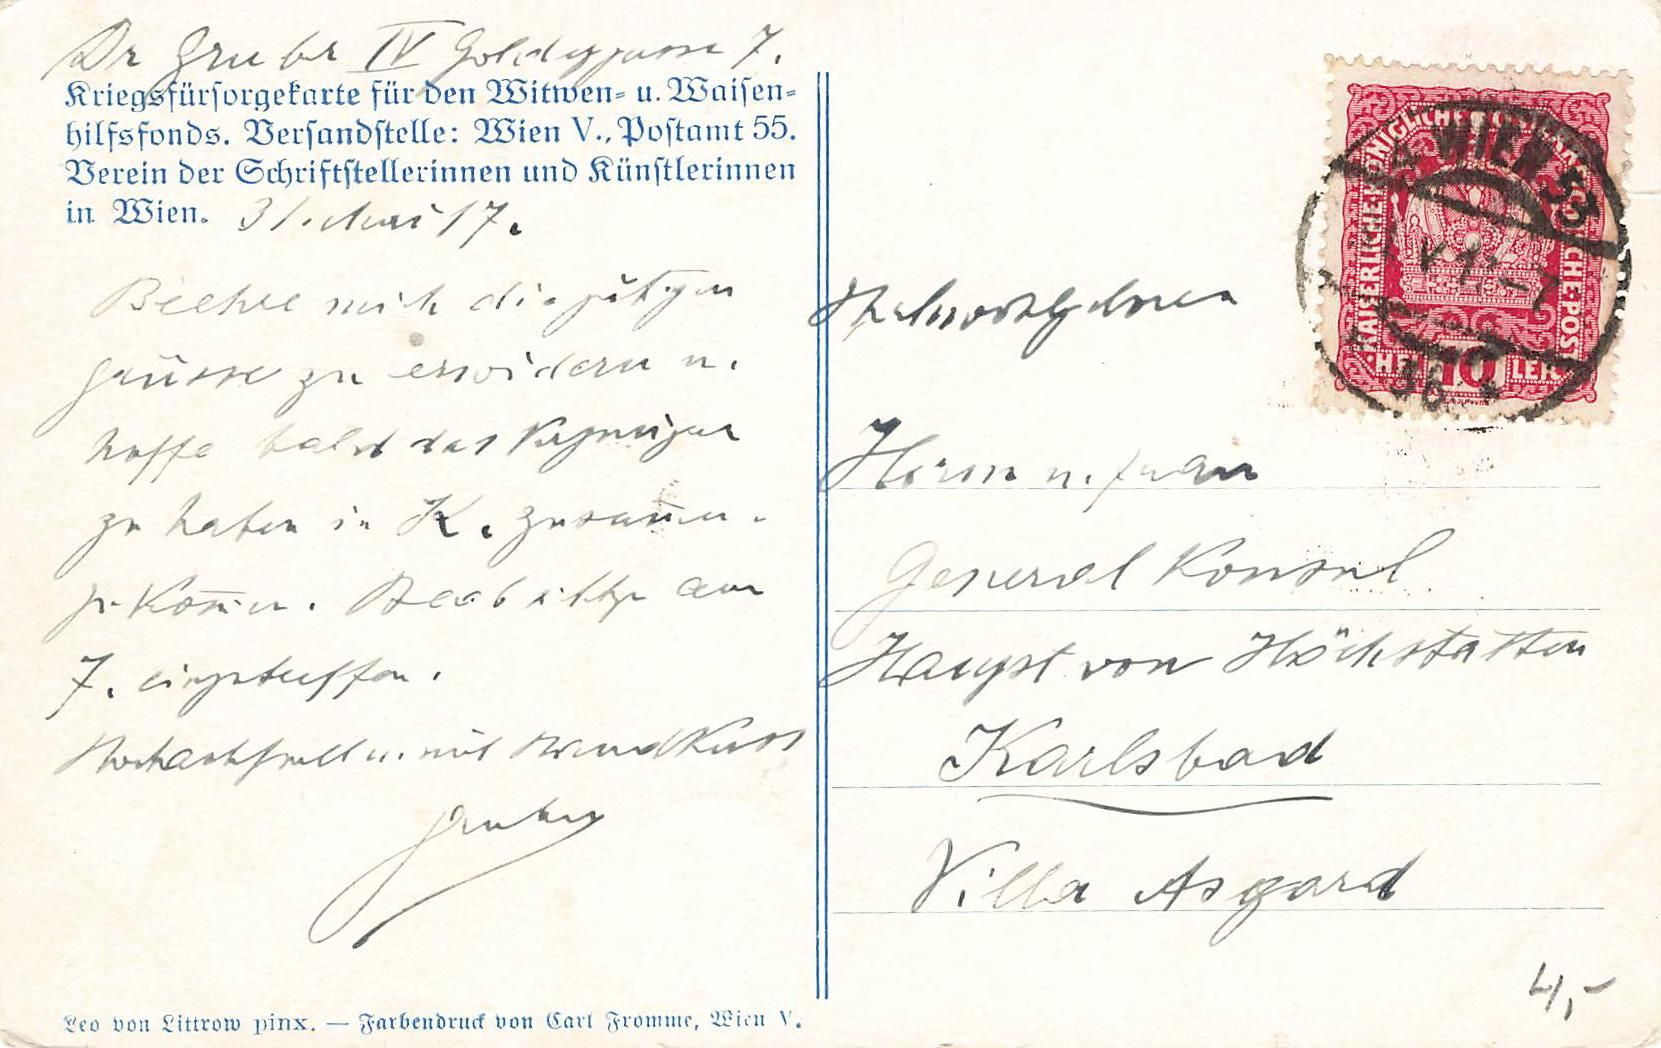 Dr Gruber IV Goldeggasse 7.
Kriegsfürsorgekarte für den Witwen- u. Waisen-
hilfsfonds. Versandstelle: Wien V., Postamt 55.
Verein der Schriftstellerinnen und Künstlerinnen
in Wien. 31. Mai 17.
Beehre mich die gütigen
Grüsse zu erwidern u.
hoffe bald das Vergnügen
zu haben in K. zusammen-
zukom̅en. Beabsichtige am
7. einzutreffen.
Hochachtungsvoll u. mit Handkuss
Gruber
Leo von Littrow pinx. — Farbendruck von Carl Fromme, Wien V.
KAISERLICHE KÖNIGLICHE ÖSTERREICHISCHE POST
HELLER 10
WIEN 53
Hochwohlgeboren
Herrn u. Frau
General Konsul
Haupt von Höchstatten
Karlsbad
Villa Asgard
4,-